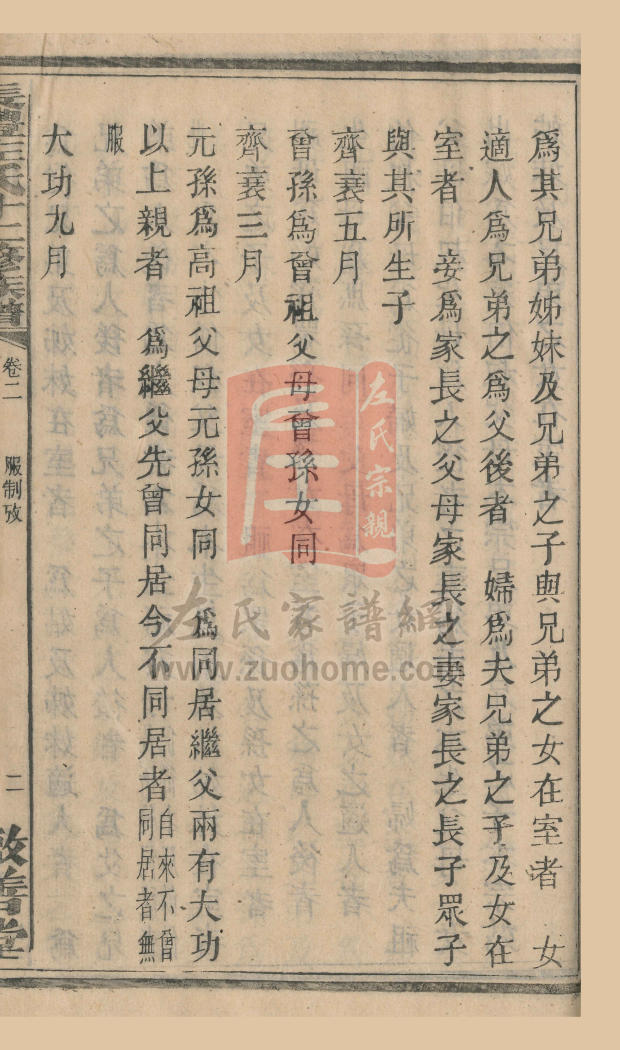 爲其兄弟姊妹及兄弟之子與兄弟之女在室者　女
適人爲兄弟之爲父後者　婦爲夫兄弟之子及女在
室者　妾爲家長之父母家長之妻家長之長子眾子
與其所生子
齊衰五月
曾孫爲曾祖父母曾孫女同
齊衰三月
元孫爲高祖父母元孫女同　爲同居繼父兩有大功
以上親者　爲繼父先曾同居今不同居者自來不曾
同居者無
服
大功九月
卷二　服制攷　二
敦善堂
左氏宗親
左氏家譜網
www.zuohome.co